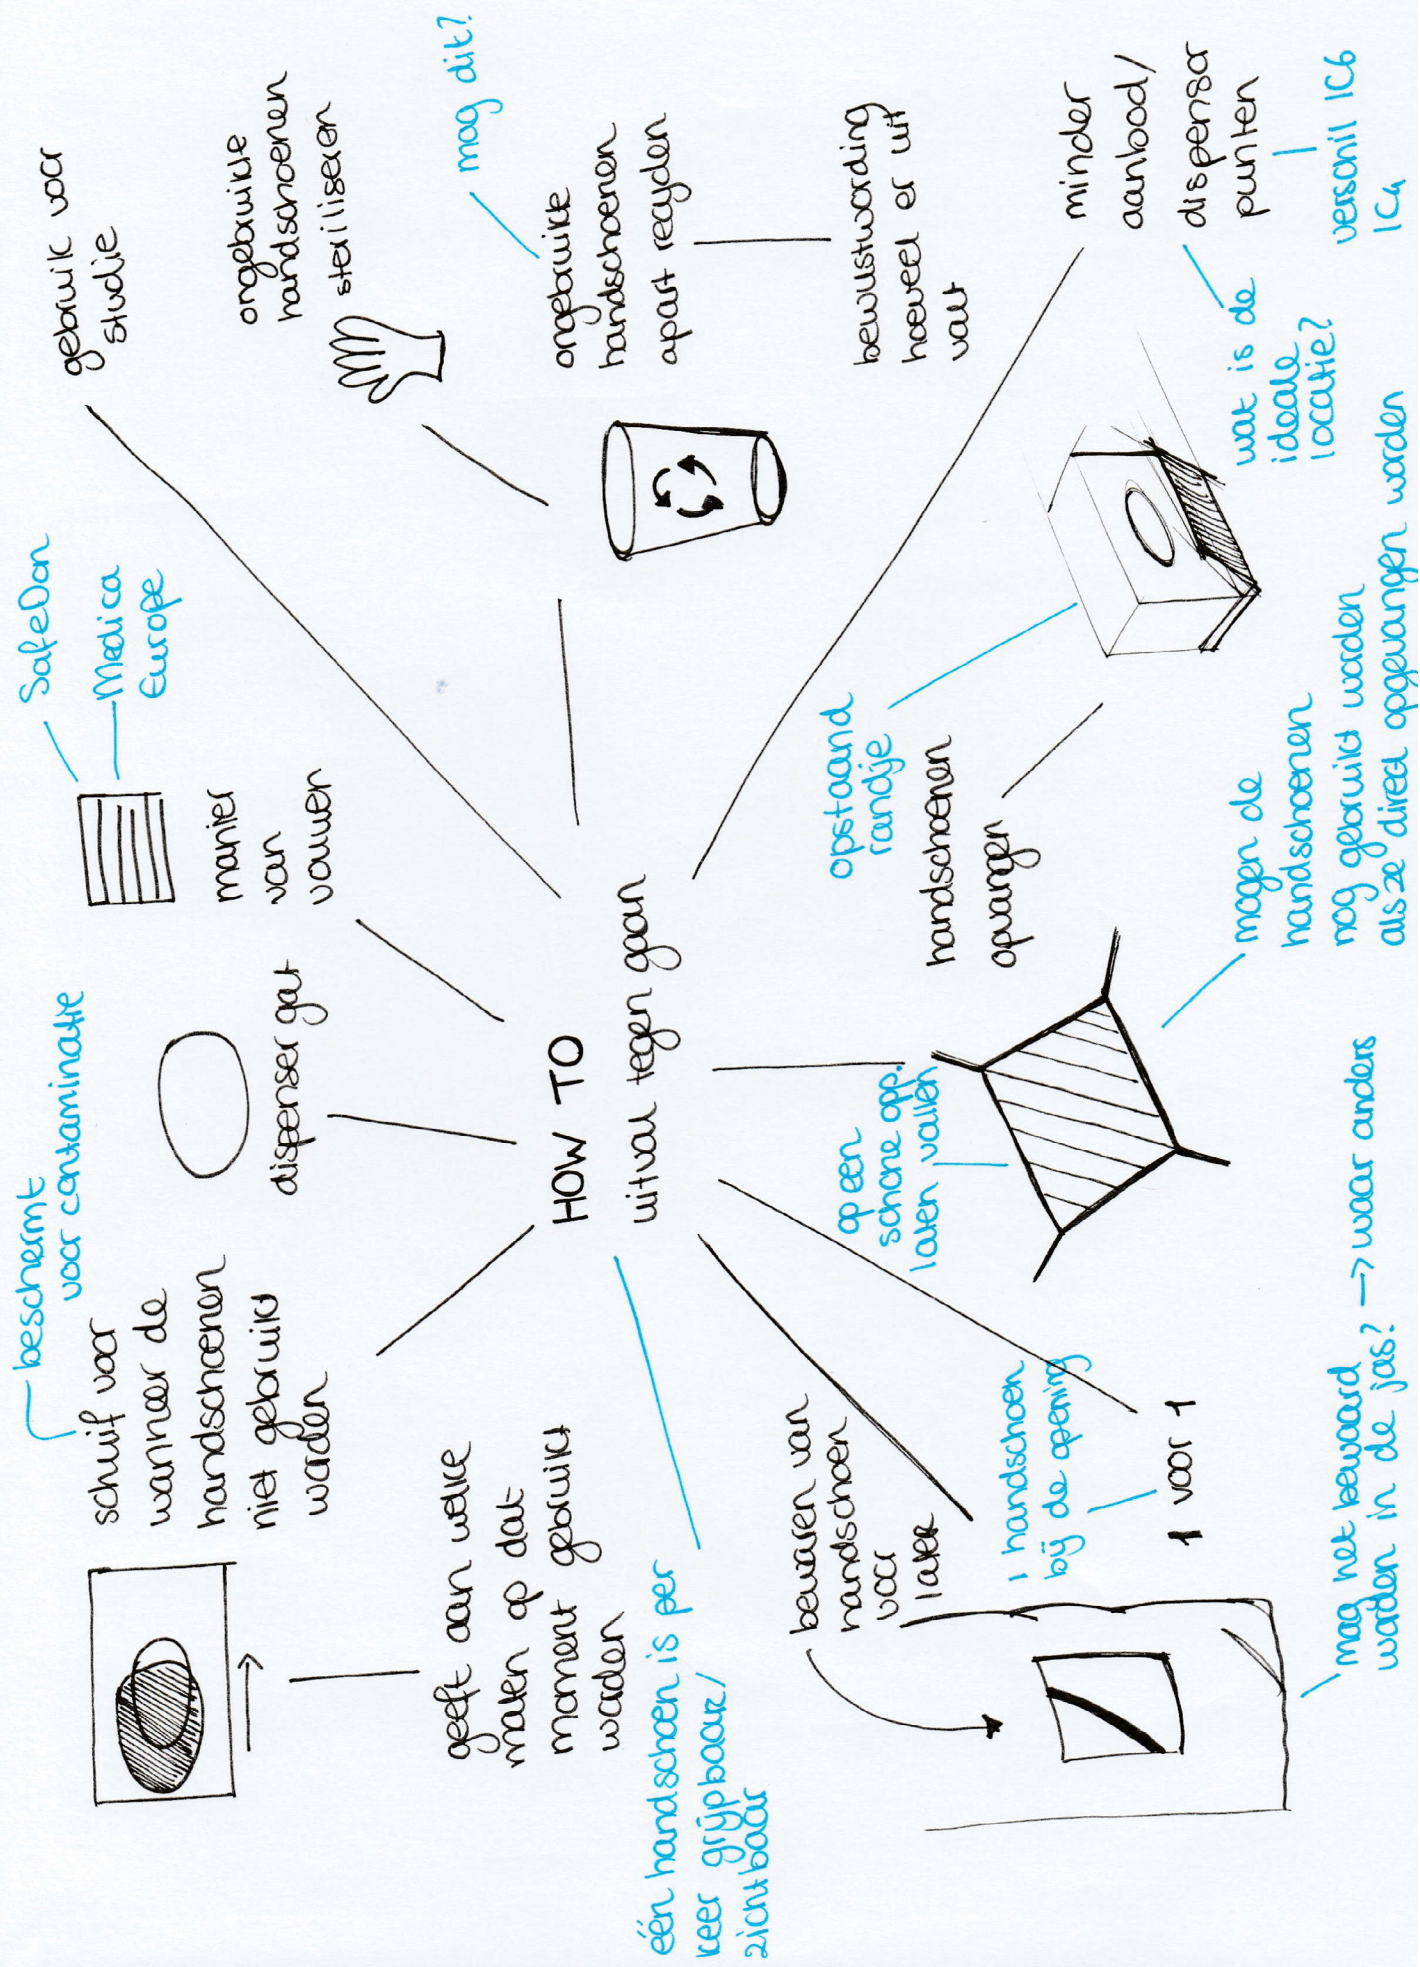 HOW TO
uitval tegen gaan
beschermt
voor contaminatie
schuif voor
wanneer de
handschoenen
niet gebruikt
worden
geeft aan welke
maten op dat
moment gebruikt
worden
dispenser gat
SafeDon
Medica
Europe
manier
van
vouwen
gebruik voor
studie
ongebruikte
handschoenen
steriliseren
mag dit?
ongebruikte
handschoenen
apart recyclen
bewustwording
hoeveel er uit
valt
minder
aanbod/
dispensor
punten
verschil IC6
IC4
wat is de
ideale
locatie?
opstaand
randje
handschoenen
opvangen
mogen de
handschoenen
nog gebruikt worden
als ze direct opgevangen worden
op een
schone opp.
laten vallen
1 handschoen
bij de opening
1 voor 1
bewaren van
handschoen
voor
later
mag het bewaard
worden in de jas? → waar anders
één handschoen is per
keer grijpbaar/
zichtbaar